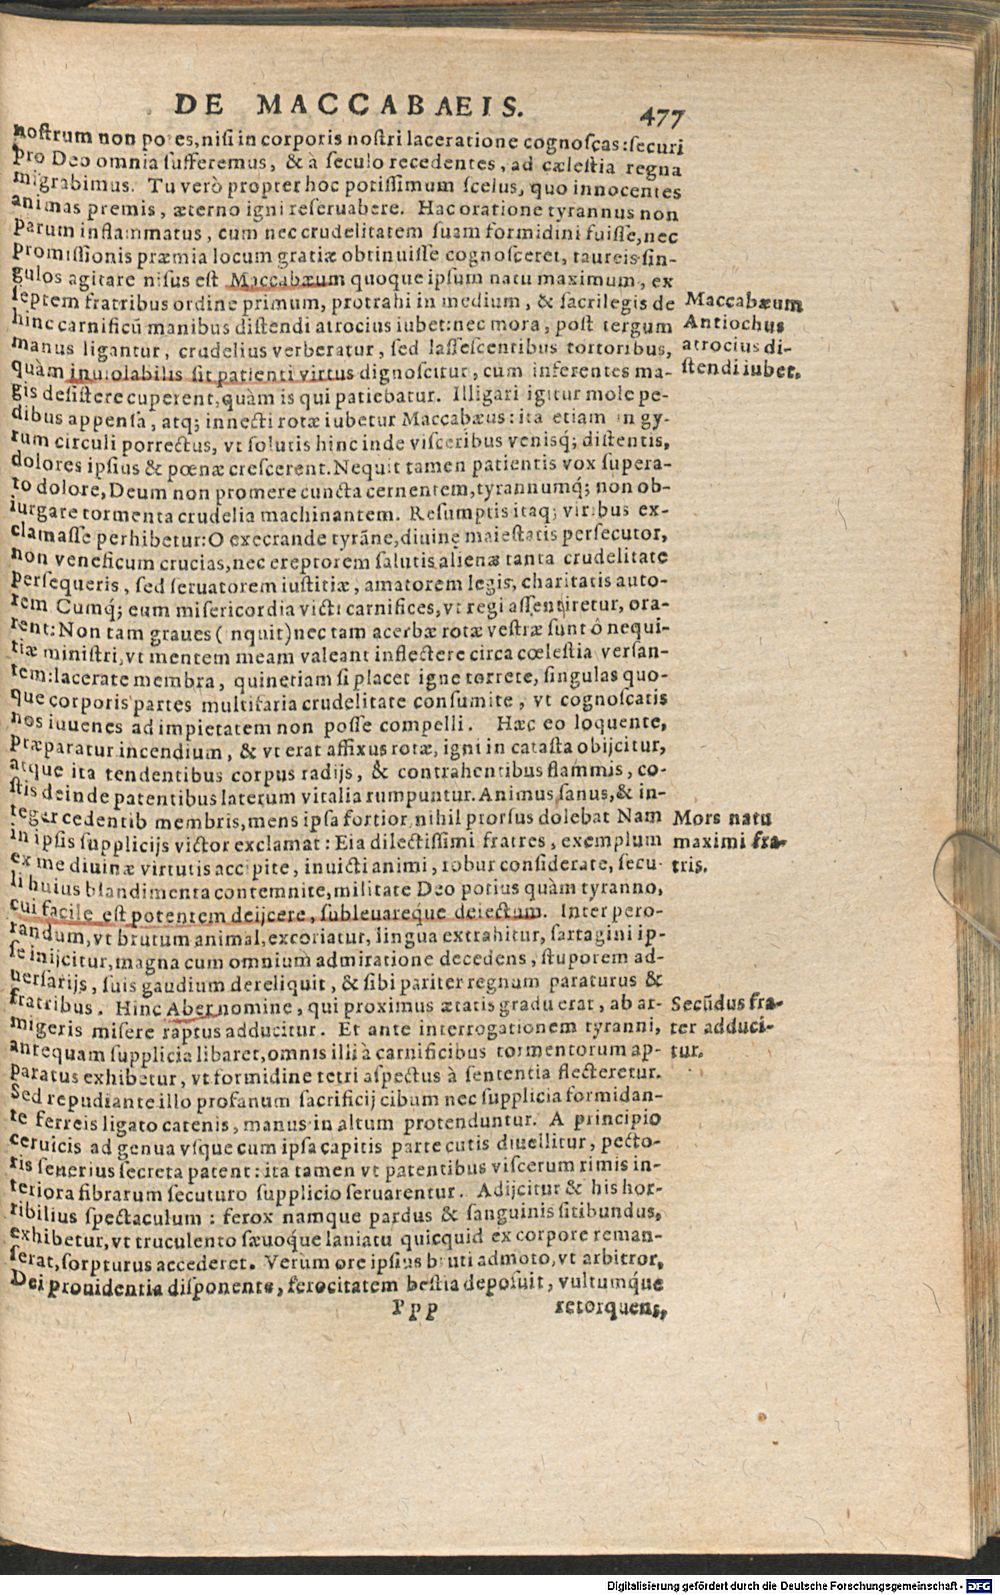 DE MACCABAEIS. 477
nostrum non potes, nisi in corporis nostri laceratione cognoscas: securi
pro Deo omnia sufferemus, & à seculo recedentes, ad cælestia regna
migrabimus. Tu verò propter hoc potissimum scelus, quo innocentes
animas premis, æterno igni reseruabere. Hac oratione tyrannus non
parum inflammatus, cum nec crudelitatem suam formidini fuisse, nec
promissionis præmia locum gratiæ obtinuisse cognosceret, taureis sin-
gulos agitare nisus est Maccabæum quoque ipsum natu maximum, ex
septem fratribus ordine primum, protrahi in medium, & sacrilegis de
hinc carnificū manibus distendi atrocius iubet: nec mora, post tergum
manus ligantur, crudelius verberatur, sed lassescentibus tortoribus,
quàm inuiolabilis sit patienti virtus dignoscitur, cum inferentes ma-
gis desistere cuperent, quàm is qui patiebatur. Illigari igitur mole pe-
dibus appensa, atq; innecti rotæ iubetur Maccabæus: ita etiam in gy-
rum circuli porrectus, vt solutis hinc inde visceribus venisq́; distentis,
dolores ipsius & pœnæ crescerent. Nequit tamen patientis vox supera-
to dolore, Deum non promere cuncta cernentem, tyrannumq́; non ob-
iurgare tormenta crudelia machinantem. Resumptis itaq; viribus ex-
clamasse perhibetur: O execrande tyrāne, diuinę maiestatis persecutor,
non veneficum crucias, nec ereptorem salutis alienæ tanta crudelitate
persequeris, sed seruatorem iustitiæ, amatorem legis, charitatis auto-
rem Cumq́; eum misericordia victi carnifices, vt regi assentiretur, ora-
rent: Non tam graues (inquit) nec tam acerbæ rotæ vestræ sunt ô nequi-
tiæ ministri, vt mentem meam valeant inflectere circa cœlestia versan-
tem: lacerate membra, quinetiam si placet igne torrete, singulas quo-
que corporis partes multifaria crudelitate consumite, vt cognoscatis
nos iuuenes ad impietatem non posse compelli. Hæc eo loquente,
præparatur incendium, & vt erat affixus rotæ, igni in catasta obijcitur,
atque ita tendentibus corpus radijs, & contrahentibus flammis, co-
stis deinde patentibus laterum vitalia rumpuntur. Animus sanus, & in-
teger cedentib membris, mens ipsa fortior nihil prorsus dolebat Nam
in ipsis supplicijs victor exclamat: Eia dilectissimi fratres, exemplum
ex me diuinæ virtutis accipite, inuicti animi, robur considerate, secu-
li huius blandimenta contemnite, militate Deo potius quàm tyranno,
cui facile est potentem deijcere, subleuareque deiectum. Inter pero-
randum, vt brutum animal, excoriatur, lingua extrahitur, sartagini ip-
se inijcitur, magna cum omnium admiratione decedens, stuporem ad-
uersarijs, suis gaudium dereliquit, & sibi pariter regnum paraturus &
fratribus. Hinc Aber nomine, qui proximus ætatis gradu erat, ab ar-
migeris misere raptus adducitur. Et ante interrogationem tyranni,
antequam supplicia libaret, omnis illi à carnificibus tormentorum ap-
paratus exhibetur, vt formidine tetri aspectus à sententia flecteretur.
Sed repudiante illo profanum sacrificij cibum nec supplicia formidan-
te ferreis ligato catenis, manus in altum protenduntur. A principio
ceruicis ad genua vsque cum ipsa capitis parte cutis diuellitur, pecto-
ris seuerius secreta patent: ita tamen vt patentibus viscerum rimis in-
teriora fibrarum secuturo supplicio seruarentur. Adijcitur & his hor-
ribilius spectaculum: ferox namque pardus & sanguinis sitibundus,
exhibetur, vt truculento sæuoque laniatu quicquid ex corpore reman-
serat, sorpturus accederet. Verùm ore ipsius bruti admoto, vt arbitror,
Dei prouidentia disponente, ferocitatem bestia deposuit, vultumq́ue
Ppp retorquens,
Maccabæum
Antiochus
atrocius di-
stendi iubet.
Mors natu
maximi fra-
tris.
Secūdus fra-
ter adduci-
tur.
Digitalisierung gefördert durch die Deutsche Forschungsgemeinschaft - DFG